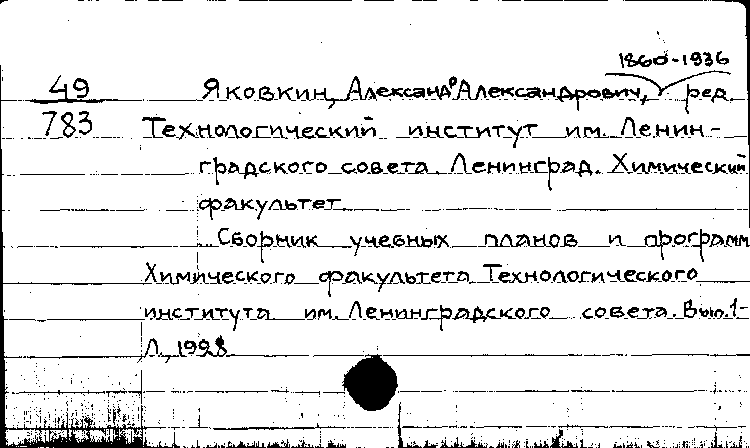 1860-1936
49 Яковкин, Александр Александрович, ред.
783 Технологический институт им. Ленин-
градского совета. Ленинград. Химический
факультет.
Сборник учебных планов и программ
Химического факультета Технологического
института им. Ленинградского совета. Вып. 1-
Л., 1928